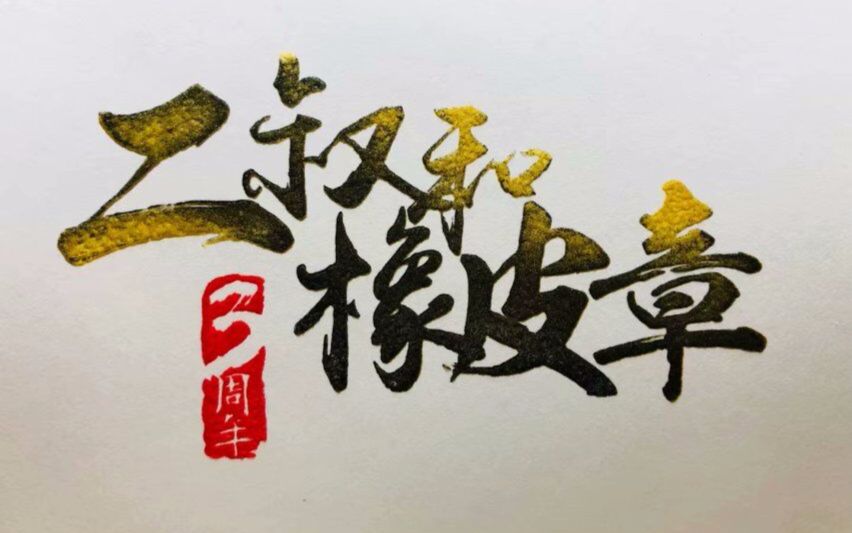 二叔和
橡皮章
周年